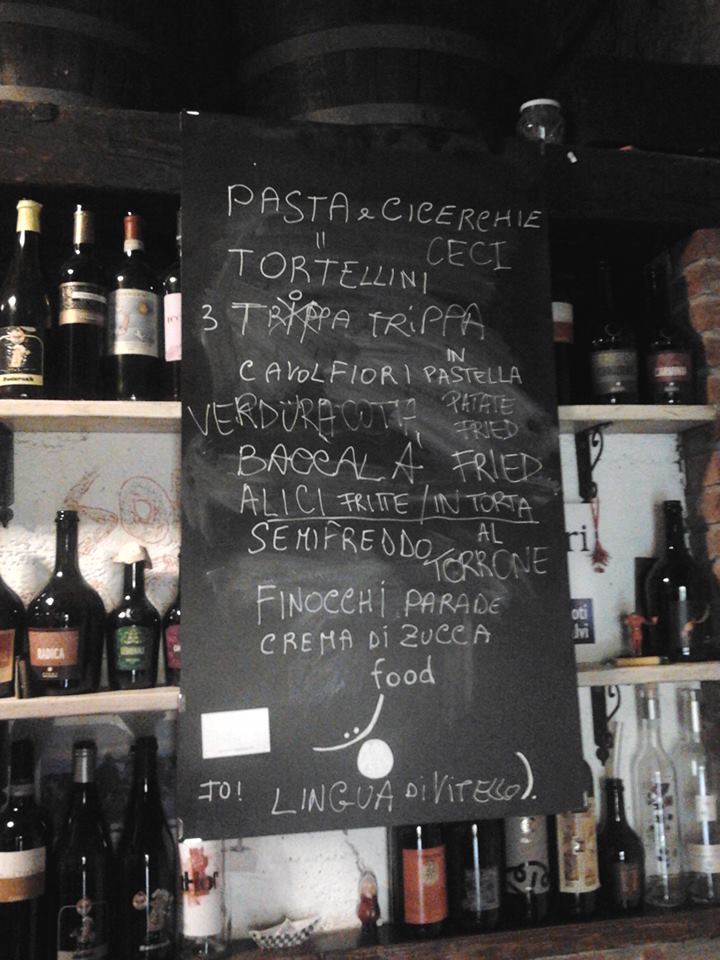 PASTA e CICERCHIE
" CECI
TORTELLINI
3 TRIPPA TRIPPA
CAVOLFIORI IN PASTELLA
VERDURA COTTA PATATE FRIED
BACCALÀ FRIED
ALICI FRITTE / IN TORTA
SEMIFREDDO AL TORRONE
FINOCCHI PARADE
CREMA DI ZUCCA
food
JO! LINGUA DI VITELLO).
RADICA